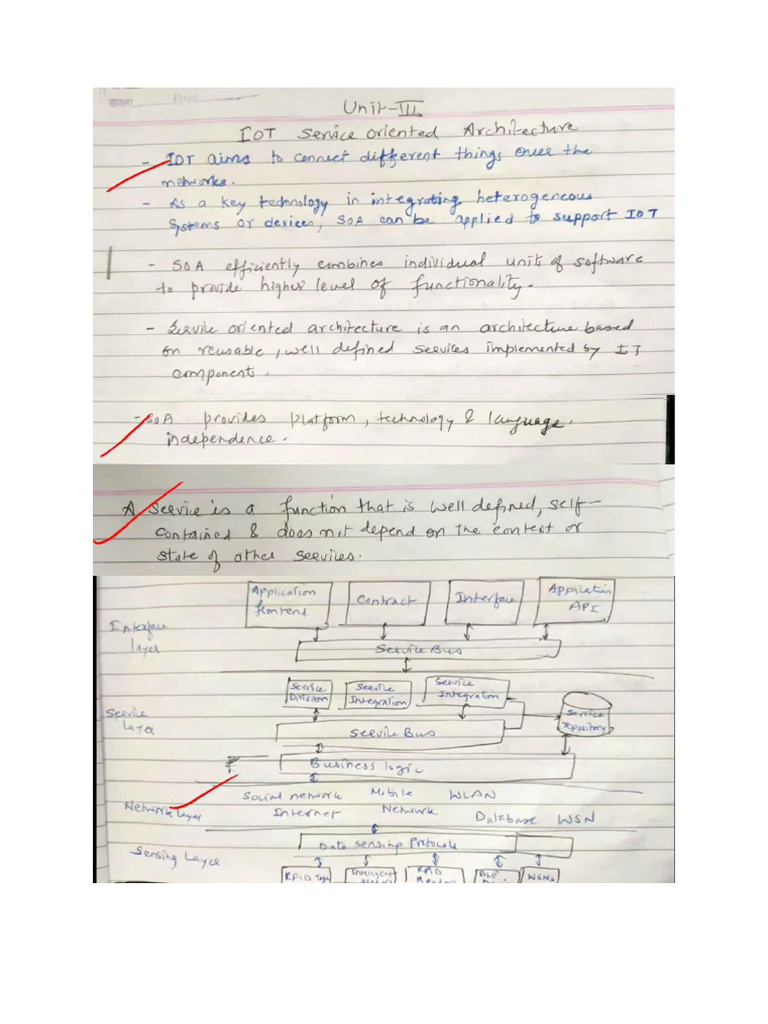 Unit-III
IOT Service Oriented Architecture
- IOT aims to connect different things over the
networks.
- As a key technology in integrating heterogeneous
Systems or devices, SOA can be applied to support IOT
- SOA efficiently combines individual units of software
to provide higher level of functionality.
- Service oriented architecture is an architecture based
on reusable, well defined services implemented by IT
components.
- SOA provides platform, technology & language
independence.
A service is a function that is well defined, self-
contained & does not depend on the context or
state of other services.
Application Contract Interface Application
frontend API
Interface
layer
Service Bus
Service Service Service
Division Integration Integration
Service
Layer
Service
Repository
Service Bus
Business logic
Social network Mobile WLAN
Network layer Internet Network Database WSN
Data sensing Protocols
Sensing Layer
RFID Tags Intelligent RFID BLE WSNs